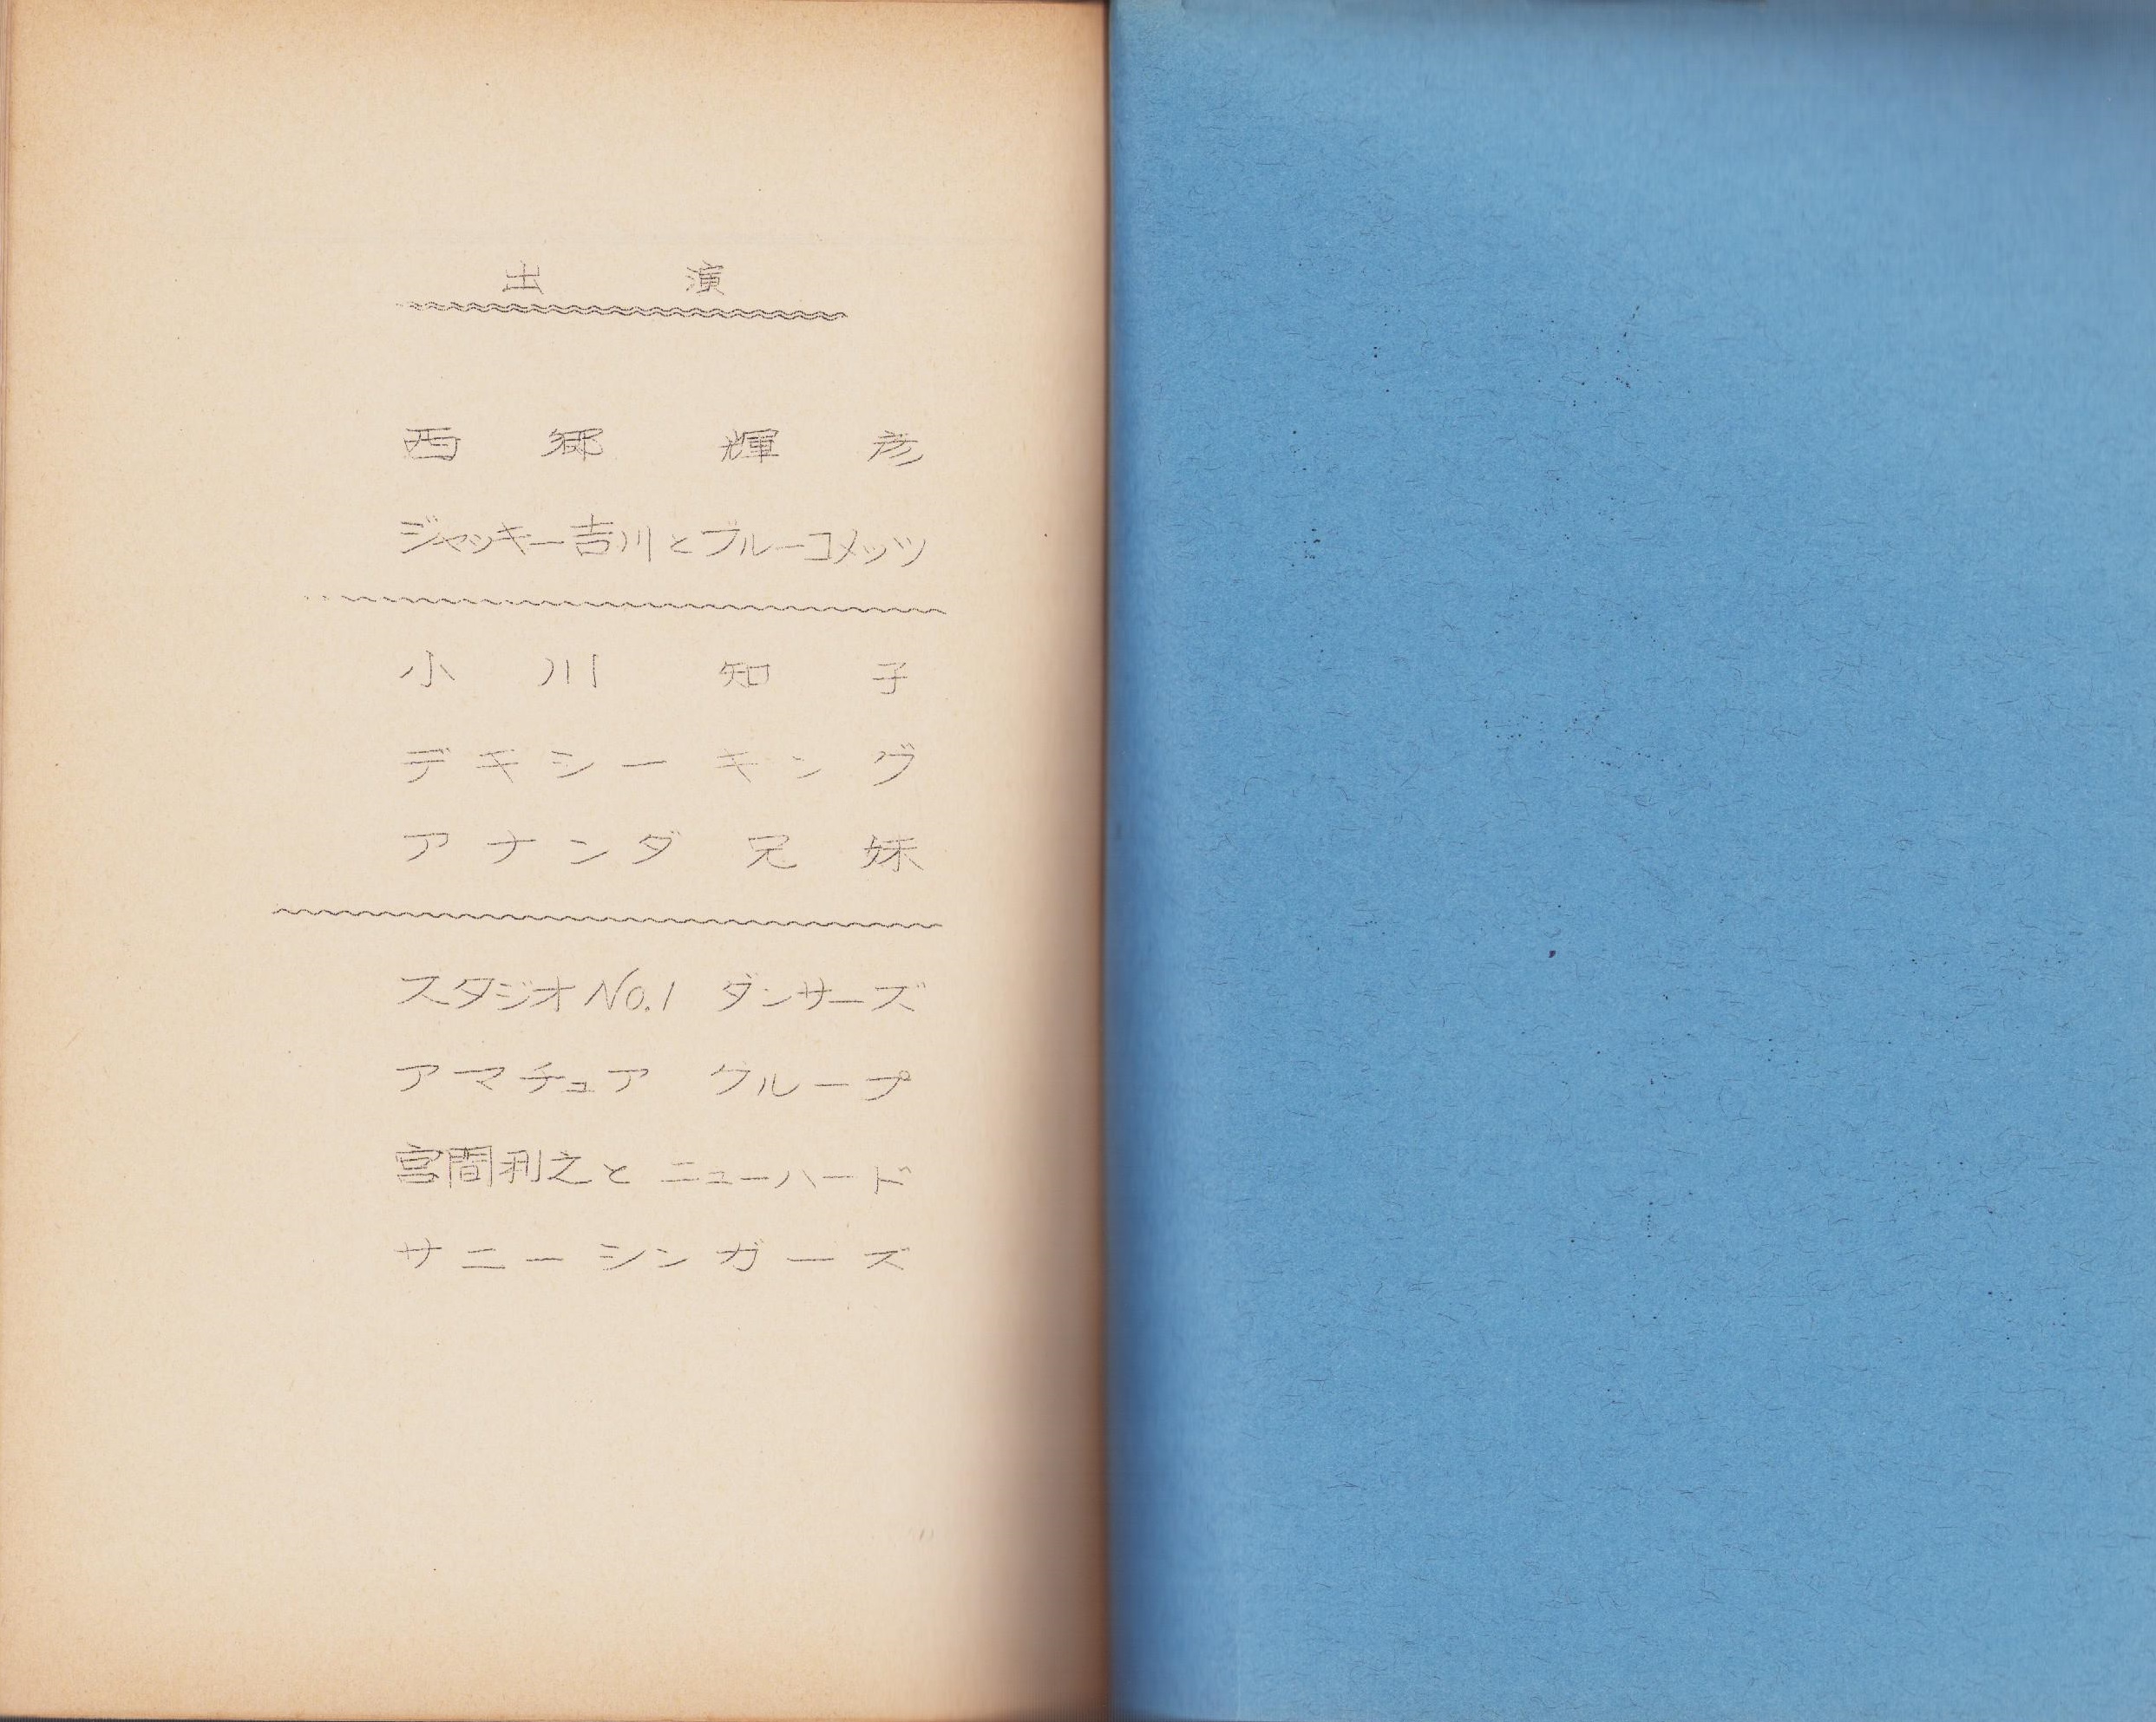 出演
西郷輝彦
ジャッキー吉川とブルーコメッツ
小川知子
デキシーキング
アナンダ兄妹
スタジオNo.1 ダンサーズ
アマチュア グループ
宮間利之と ニューハード
サニーシンガーズ